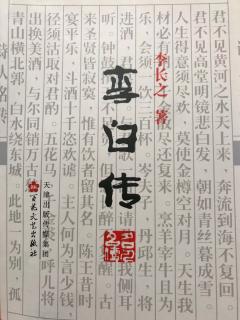 君不见黄河之水天上来 奔流到海不复回。
君不见高堂明镜悲白发 朝如青丝暮成雪。
人生得意须尽欢，莫使金樽空对月。天生我
材必有 复来。烹羊宰牛且为
乐，会须一饮三百杯。岑夫子，丹丘生，将
进酒， 我侧耳
听。钟鼓 醒。古
来圣贤皆寂寞，惟有饮者留其名。陈王昔时
宴平乐，斗酒十千恣欢谑。主人何为言少钱
径须沽取对君酌。五花马 呼儿将
出换美酒，与尔同销万古
青山横北郭，白水绕东城。此地 为别，孤
李长之 著
李白传
天津出版传媒集团
百花文艺出版社